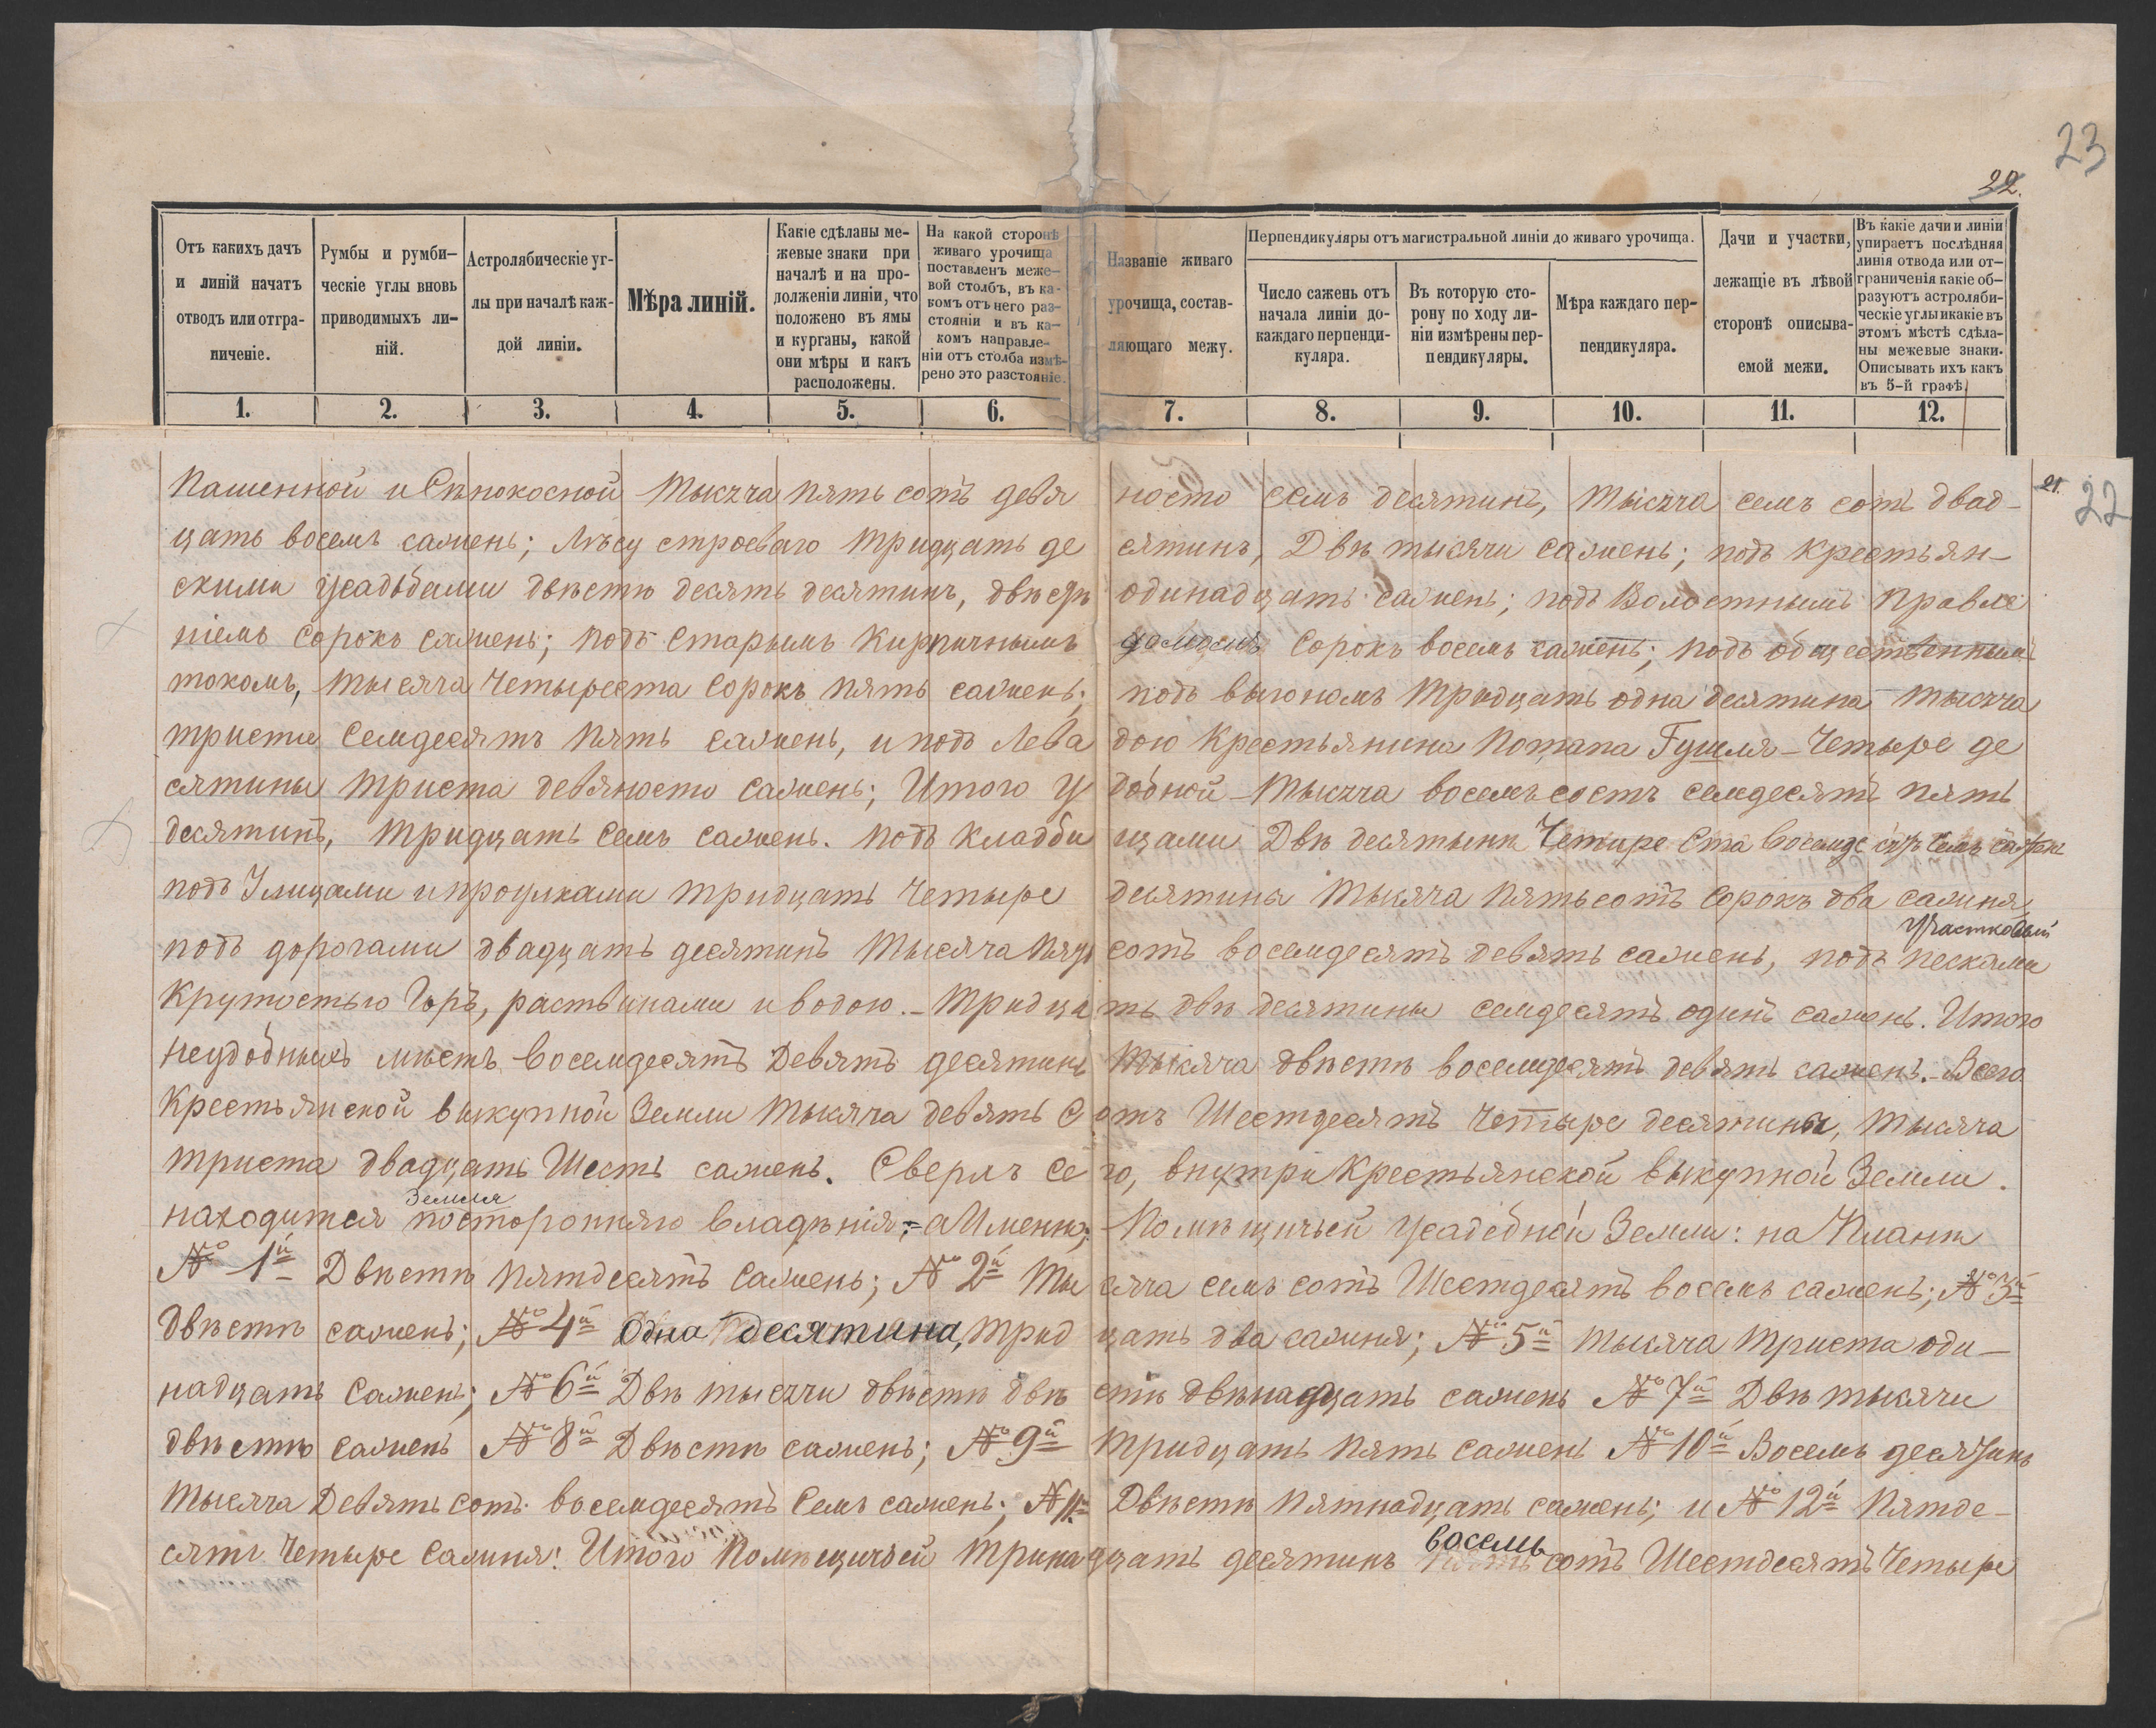 23
22.
Отъ какихъ дачъ
и линій начатъ
отводъ или отгра-
ниченіе.
Румбы и румби-
ческіе углы вновь
приводимыхъ ли-
ній.
Астролябическіе уг-
лы при началѣ каж-
дой линіи.
Мѣра линій.
Какіе сдѣланы ме-
жевые знаки при
началѣ и на про-
долженіи линіи, что
положено въ ямы
и курганы, какой
они мѣры и какъ
расположены.
На какой сторонѣ
живаго урочища
поставленъ меже-
вой столбъ, въ ка-
комъ отъ него раз-
стояніи и въ ка-
комъ направле-
ніи отъ столба измѣ-
рено это разстояніе.
Названіе живаго
урочища, состав-
ляющаго межу.
Перпендикуляры отъ магистральной линіи до живаго урочища.
Число сажень отъ
начала линіи до
каждаго перпенди-
куляра.
Въ которую сто-
рону по ходу ли-
ніи измѣрены пер-
пендикуляры.
Мѣра каждаго пер-
пендикуляра.
Дачи и участки,
лежащіе въ лѣвой
сторонѣ описыва-
емой межи.
Въ какіе дачи и линіи
упираетъ послѣдняя
линія отвода или от-
граниченія какіе об-
разуютъ астроляби-
ческіе углы и какіе въ
этомъ мѣстѣ сдѣла-
ны межевые знаки.
Описывать ихъ какъ
въ 5-й графѣ.
1. 2. 3. 4. 5. 6. 7. 8. 9. 10. 11. 12.
21.
22
Пашенной и Сѣнокосной тысяча пять сотъ девя носто семь десятинъ, тысяча семь сотъ двад-
цать восемь сажень; лѣсу строеваго тридцать де сятинъ, Двѣ тысячи сажень; подъ крестьян-
скими усадьбами двѣсти десять десятинъ, двѣсти одинадцать сажень; подъ Волостнымъ правле
ніемъ сорокъ сажень; подъ старымъ кирпичнымъ сорокъ восемь сажень; подъ общественнымъ
токомъ, тысяча четыреста сорокъ пять сажень; подъ выгономъ тридцать одна десятина тысяча
триста семдесятъ пять сажень, и подъ Лева дою крестьянина Потапа Гушля - Четыре де
сятины триста девяносто сажень; Итого у добной - тысяча восемь сотъ семдесятъ пять
десятинъ, тридцать семь сажень. подъ кладби щами Двѣ десятины Четыре ста восемде сятъ семь сажен
подъ Улицами и проулками тридцать четыре десятины тысяча пятьсотъ сорокъ два сажня
участковый
подъ дорогами двадцать десятинъ тысяча пять сотъ восемдесятъ девять сажень, подъ песками
крутостью горъ, и водою. - тридца ть двѣ десятины семдесятъ одинъ сажень. Итого
неудобныхъ мѣстъ восемдесятъ девять десятинъ тысяча двѣсти восемдесятъ девять сажень. - Всего
Крестьянской выкупной Земли тысяча девять с отъ Шестдесятъ четыре десятины, тысяча
триста двадцать Шесть сажень. Сверхъ се го, внутри Крестьянской выкупной Земли.
Земля
находится посторонняго владѣнія; - а Именно; Помѣщичьей усадебной Земли: на Планѣ
№ 1й Двѣсти пятдесятъ сажень; № 2й Ты сяча семь сотъ Шестдесятъ восемь сажень; № 3й
Двѣсти сажень; № 4й Одна десятина, трид цать два сажня; № 5й тысяча триста оди-
надцать сажень; № 6й Двѣ тысячи двѣсти двѣ сти двѣнадцать сажень № 7й Двѣ тысячи
двѣсти сажень № 8й Двѣсти сажень; № 9й тридцать пять сажень № 10й Восемь десятинъ
тысяча Девять сотъ восемдесятъ семь сажень; № 11й Двѣсти пятнадцать сажень; и № 12й пятде-
восемь
сятъ четыре сажня: Итого Помѣщичьей трина дцать десятинъ сотъ Шестдесятъ четыре